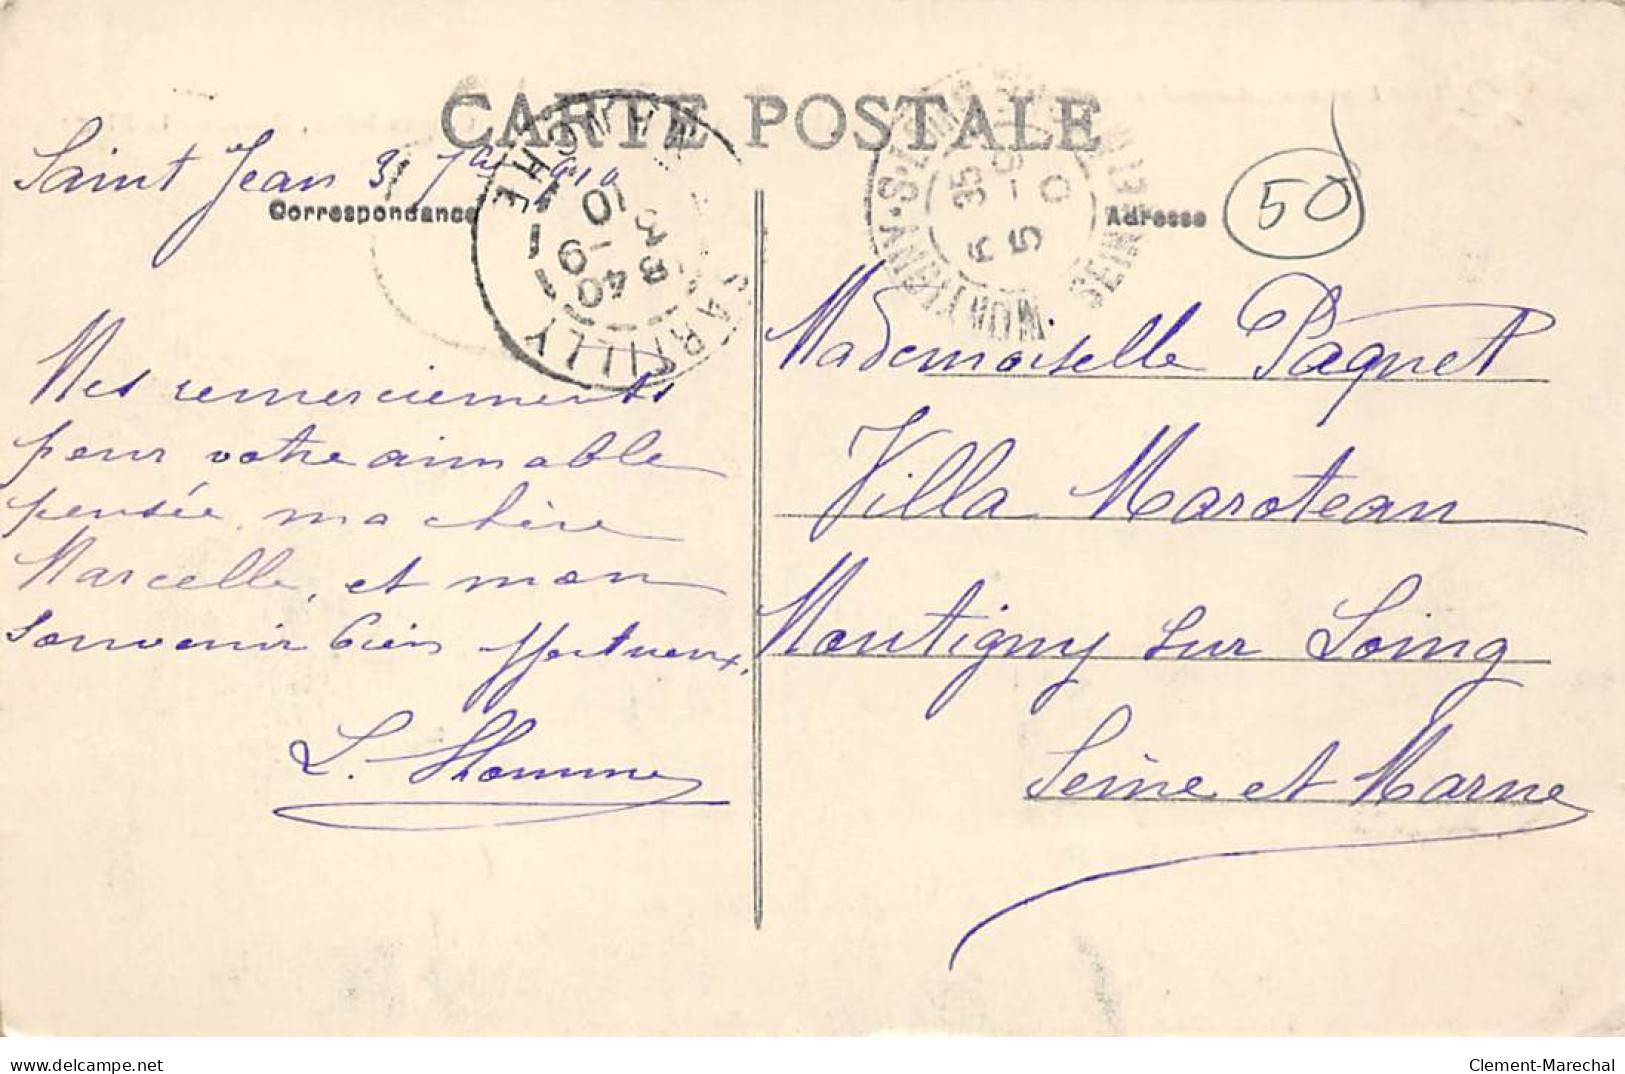 CARTE POSTALE
Saint Jean 3 7bre 1910
Correspondance
Adresse
50
MANCHE
SARTILLY
8 40
3 - 9
10
MONTIGNY-S-LOING
SEINE
Mes remerciements
pour votre aimable
pensée, ma chère
Marcelle, et mon
souvenir bien affectueux.
L. Lhomme
Mademoiselle Paquet
Villa Maroteau
Montigny sur Loing
Seine et Marne
delcampe.net
Clement-Marechal